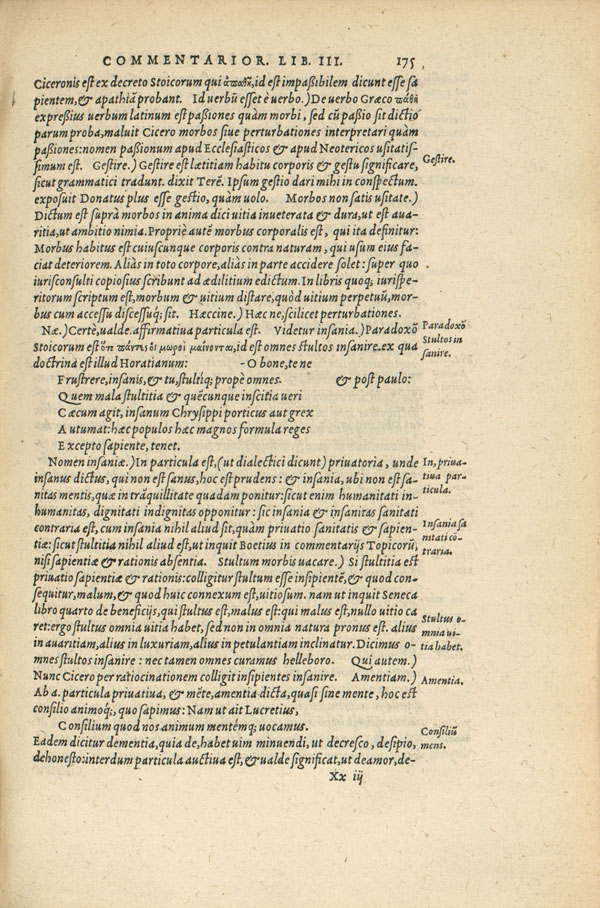 COMMENTARIOR. LIB. III. 175
Ciceronis est ex decreto Stoicorum qui ἀπαθῆ, id est impaßibilem dicunt esse sa
pientem, & apathiā probant. Id uerbū esset è uerbo.) De uerbo Græco πάθη
expreßius uerbum latinum est paßiones quàm morbi, sed cū paßio sit dictio
parum proba, maluit Cicero morbos siue perturbationes interpretari quàm
paßiones: nomen paßionum apud Ecclesiasticos & apud Neotericos usitatis-
simum est. Gestire.) Gestire est lætitiam habitu corporis & gestu significare,
Gestire.
sicut grammatici tradunt. dixit Terē. Ipsum gestio dari mihi in conspectum.
exposuit Donatus plus esse gestio, quàm uolo. Morbos non satis usitate.)
Dictum est suprà morbos in anima dici uitia inueterata & dura, ut est aua-
ritia, ut ambitio nimia. Propriè autē morbus corporalis est, qui ita definitur:
Morbus habitus est cuiuscunque corporis contra naturam, qui usum eius fa-
ciat deteriorem. Aliàs in toto corpore, aliàs in parte accidere solet: super quo
iurisconsulti copiosius scribunt ad ædilitium edictum. In libris quoq; iurispe-
ritorum scriptum est, morbum & uitium distare, quòd uitium perpetuū, mor-
bus cum accessu discessuq; sit. Hæccine.) Hæc ne, scilicet perturbationes.
Næ.) Certè, ualde. affirmatiua particula est. Videtur insania.) Paradoxō
Paradoxō
Stoicorum est ὅτι πάντες οἱ μωροὶ μαίνονται, id est omnes stultos insanire. ex qua
Stultos in
sanire.
doctrina est illud Horatianum: - O bone, te ne
Frustrere, insanis, & tu, stultiq; propè omnes. & post paulo:
Quem mala stultitia & quēcunque inscitia ueri
Cæcum agit, insanum Chrysippi porticus aut grex
Autumat: hæc populos hæc magnos formula reges
Excepto sapiente, tenet.
Nomen insaniæ.) In particula est, (ut dialectici dicunt) priuatoria, unde
In, priua-
insanus dictus, qui non est sanus, hoc est prudens: & insania, ubi non est sa-
tiua par-
nitas mentis, quæ in trāquillitate quadam ponitur: sicut enim humanitati in-
ticula.
humanitas, dignitati indignitas opponitur: sic insania & insanitas sanitati
contraria est, cum insania nihil aliud sit, quàm priuatio sanitatis & sapien-
Insania sa
nitati cō-
traria.
tiæ: sicut stultitia nihil aliud est, ut inquit Boetius in commentarijs Topicorū,
nisi sapientiæ & rationis absentia. Stultum morbis uacare.) Si stultitia est
priuatio sapientiæ & rationis: colligitur stultum esse insipientē, & quod con-
sequitur, malum, & quod huic connexum est, uitiosum. nam ut inquit Seneca
libro quarto de beneficijs, qui stultus est, malus est: qui malus est, nullo uitio ca
ret: ergo stultus omnia uitia habet, sed non in omnia natura pronus est. alius
Stultus o-
mnia ui-
tia habet.
in auaritiam, alius in luxuriam, alius in petulantiam inclinatur. Dicimus o-
mnes stultos insanire: nec tamen omnes curamus helleboro. Qui autem.)
Nunc Cicero per ratiocinationem colligit insipientes insanire. Amentiam.)
Amentia.
Ab a. particula priuatiua, & mēte, amentia dicta, quasi sine mente, hoc est
consilio animoq;, quo sapimus: Nam ut ait Lucretius,
Consilium quod nos animum mentēmq; uocamus.
Consiliū
mens.
Eadem dicitur dementia, quia de, habet uim minuendi, ut decresco, desipio,
dehonesto: interdum particula auctiua est, & ualde significat, ut deamor, de-
Xx iij